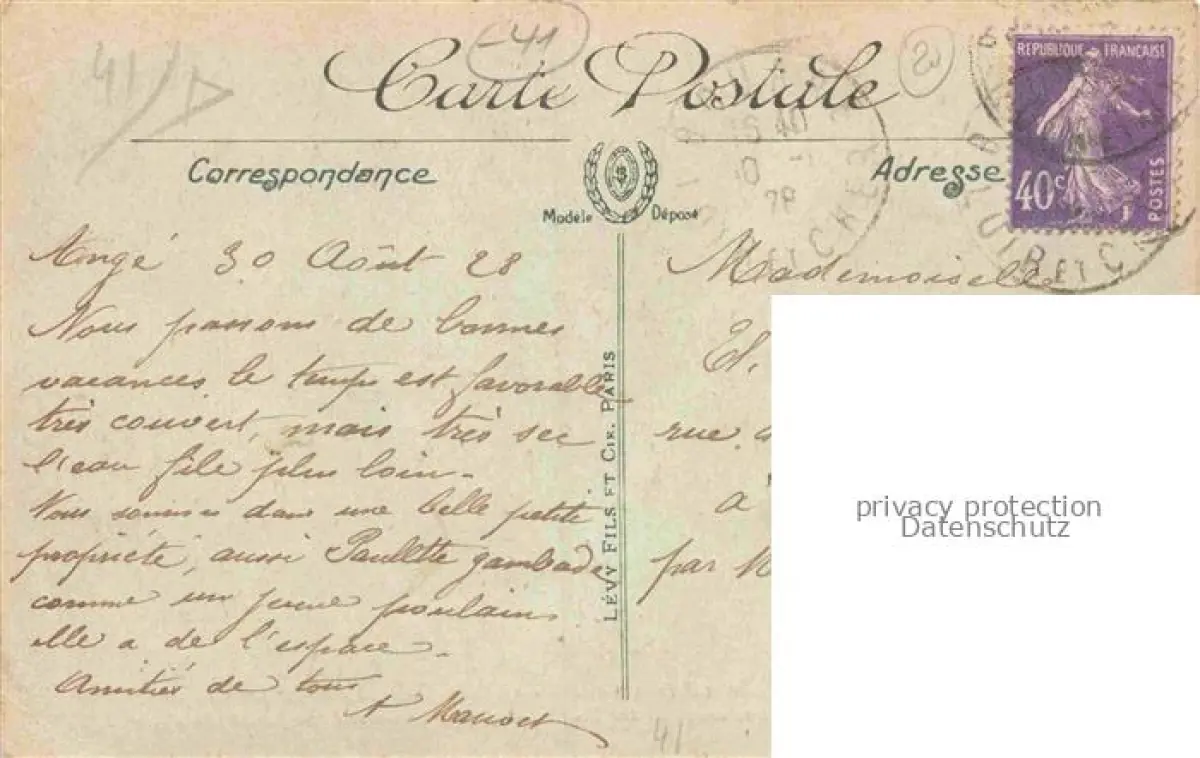 -41
41/D
Carte Postale
Correspondance
Modèle Déposé
Adresse
REPUBLIQUE FRANÇAISE
40c
POSTES
15 40
Angé 30 Août 28
Nous passons de bonnes
vacances le temps est favorable
très couvert, mais très sec
l'eau file plus loin -
Nous sommes dans une belle petite
propriété, aussi Paulette gambade
comme un jeune poulain
elle a de l'espace -
Amitiés de tous
LÉVY FILS ET CIE. PARIS
Mademoiselle
Et.
rue
à
par M
41
privacy protection
Datenschutz